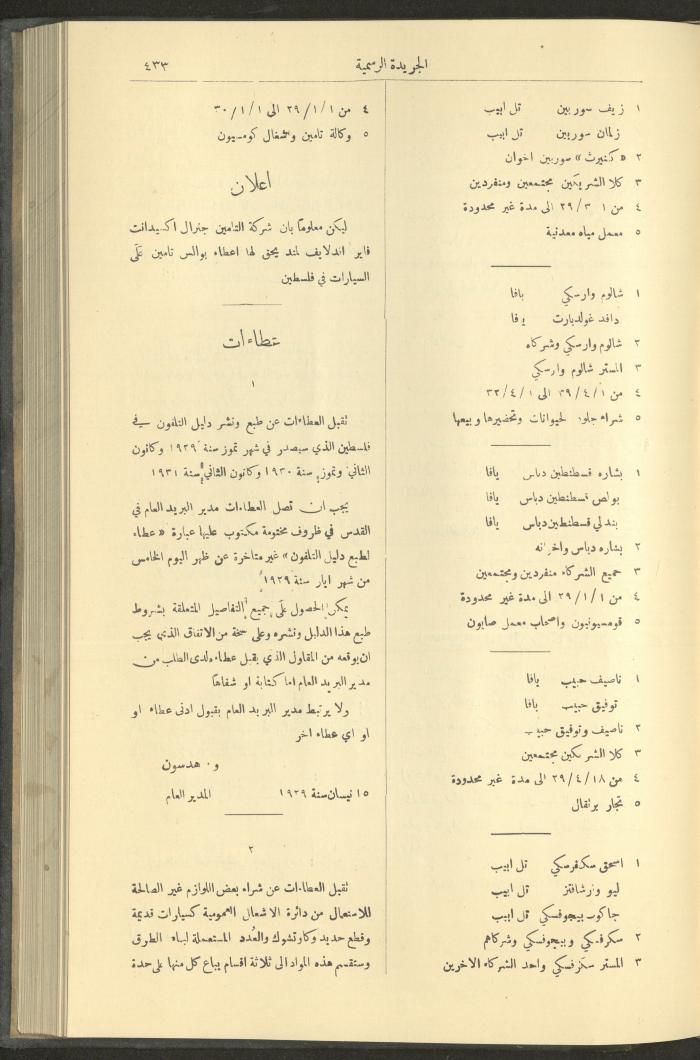 الجريدة الرسمية
٤٣٣
١ زيف سوربين تل ابيب
زلمان سوربين تل ابيب
٢ «كنيرث» سوربين اخوان
٣ كلا الشريكين مجتمعين ومنفردين
٤ من ٢٩/٣/١ الى مدة غير محدودة
٥ معمل مياه معدنية
١ شالوم وارسكي يافا
دافد غولدبارت يافا
٢ شالوم وارسكي وشركاه
٣ المستر شالوم وارسكي
٤ من ٢٩/٤/١ الى ٣٢/٤/١
٥ شراء جلود الحيوانات وتحضيرها وبيعها
١ بشاره قسطنطين دباس يافا
بولص قسطنطين دباس يافا
بندلي قسطنطين دباس يافا
٢ بشاره دباس واخوانه
٣ جميع الشركاء منفردين ومجتمعين
٤ من ٢٩/١/١ الى مدة غير محدودة
٥ قومسيونيون واصحاب معمل صابون
١ ناصيف حبيب يافا
توفيق حبيب يافا
٢ ناصيف وتوفيق حبيب
٣ كلا الشريكين مجتمعين
٤ من ٢٩/٤/١٨ الى مدة غير محدودة
٥ تجار برتقال
١ اسحق سكفرسكي تل ابيب
ليو ورشافتز تل ابيب
جاكوب بيجوفسكي تل ابيب
٢ سكرفسكي وبيجوفسكي وشركاهم
٣ المستر سكرفسكي واحد الشركاء الاخرين
٤ من ٢٩/١/١ الى ٣٠/١/١
٥ وكالة تامين وشغال كومسيون
اعلان
ليكن معلوماً بان شركة التامين جنرال اكسيدانت
فاير اندلايف لمتد يحق لها اعطاء بوالس تامين على
السيارات في فلسطين
عطاءات
١
تقبل العطاءات عن طبع ونشر دليل التلفون في
فلسطين الذي سيصدر في شهر تموز سنة ١٩٢٩ وكانون
الثاني وتموز سنة ١٩٣٠ وكانون الثاني سنة ١٩٣١
يجب ان تصل العطاءات مدير البريد العام في
القدس في ظروف مختومة مكتوب عليها عبارة «عطاء
لطبع دليل التلفون» غير متاخرة عن ظهر اليوم الخامس
من شهر ايار سنة ١٩٢٩
يمكن الحصول على جميع التفاصيل المتعلقة بشروط
طبع هذا الدليل ونشره وعلى نسخة من الاتفاق الذي يجب
ان يوقعه من المقاول الذي يقبل عطاءه لدى الطلب من
مدير البريد العام اما كتابة او شفاهاً
ولا يرتبط مدير البريد العام بقبول ادنى عطاء او
او اي عطاء اخر
و٠ هدسون
١٥ نيسان سنة ١٩٢٩ المدير العام
٢
تقبل العطاءات عن شراء بعض اللوازم غير الصالحة
للاستعمال من دائرة الاشغال العمومية كسيارات قديمة
وقطع حديد وكاوتشوك والعُدد المستعملة لبناء الطرق
وستقسم هذه المواد الى ثلاثة اقسام يباع كل منها على حدة